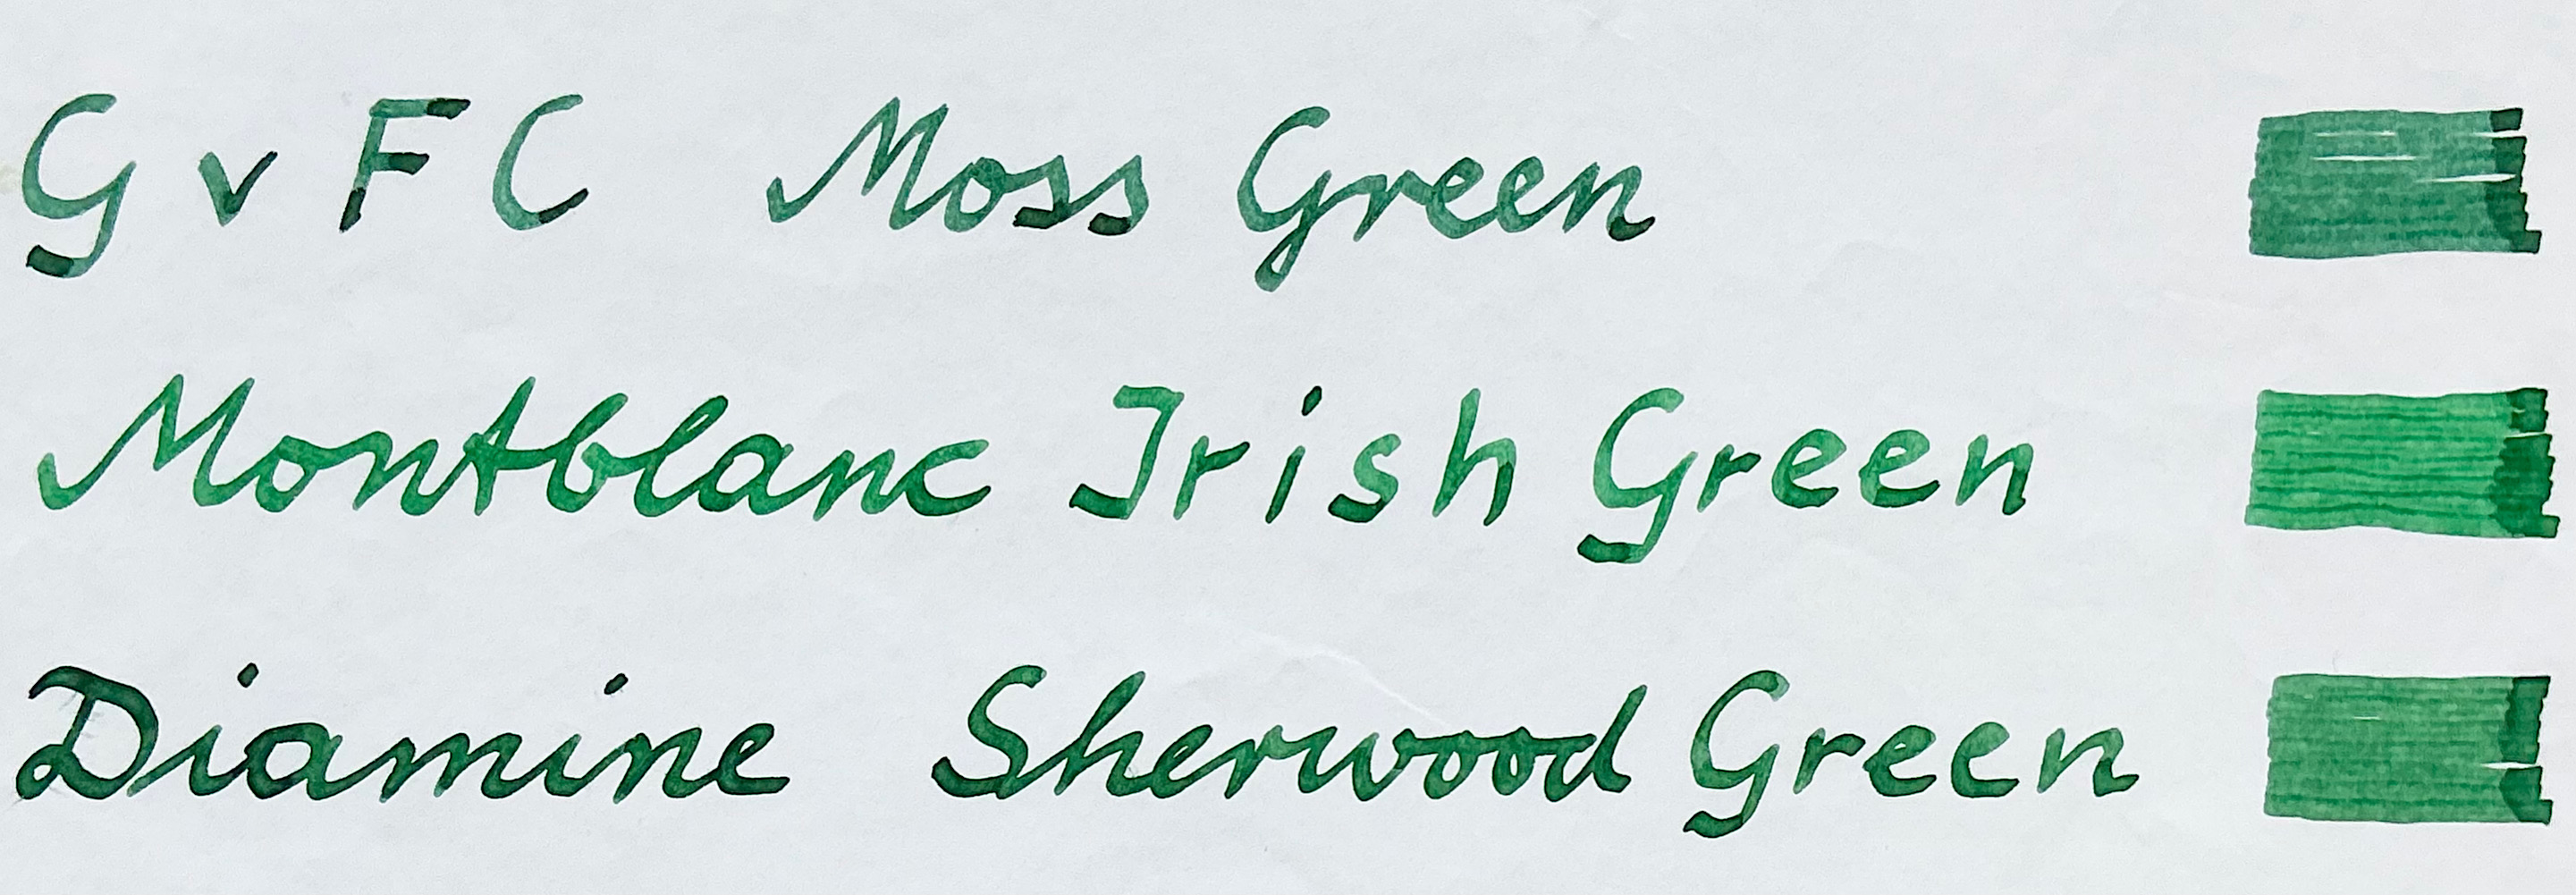 G v F C Moss Green
Montblanc Irish Green
Diamine Sherwood Green